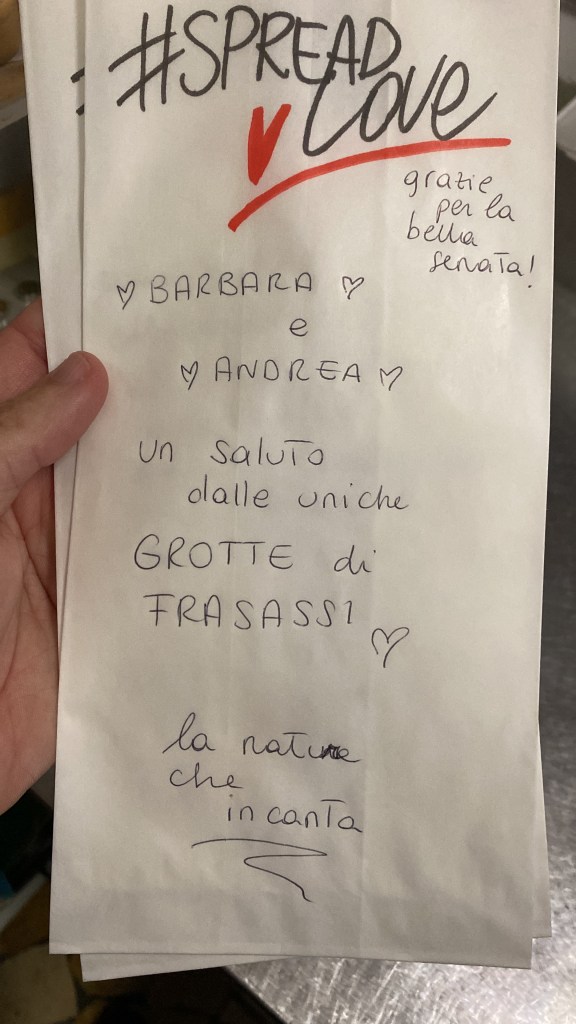 #SPREAD
Love
grazie
per la
bella
serata!
♡ BARBARA ♡
e
♡ ANDREA ♡
un saluto
dalle uniche
GROTTE di
FRASASSI
♡
la natura
che
incanta